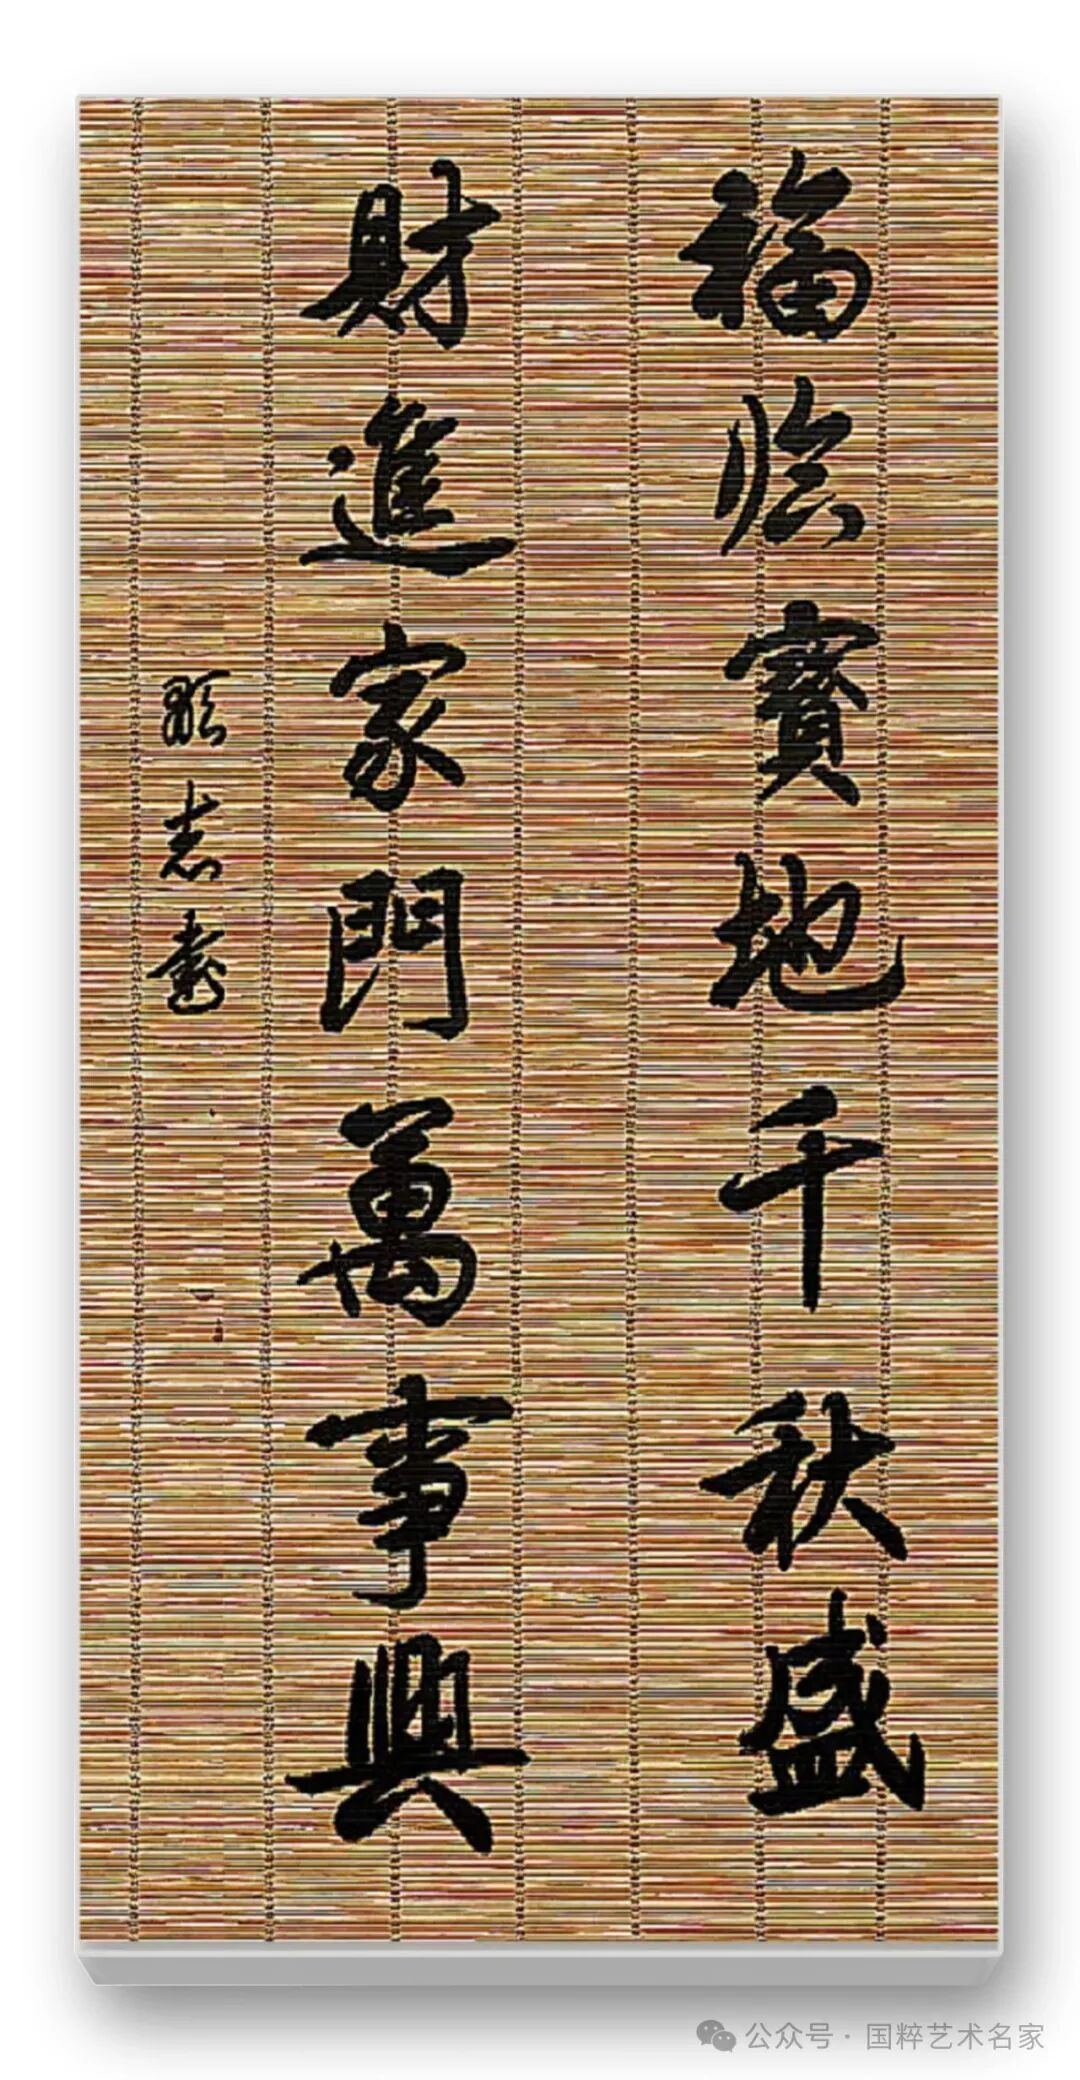 福临寳地千秋盛
財進家門萬事興
志書
公众号·国粹艺术名家